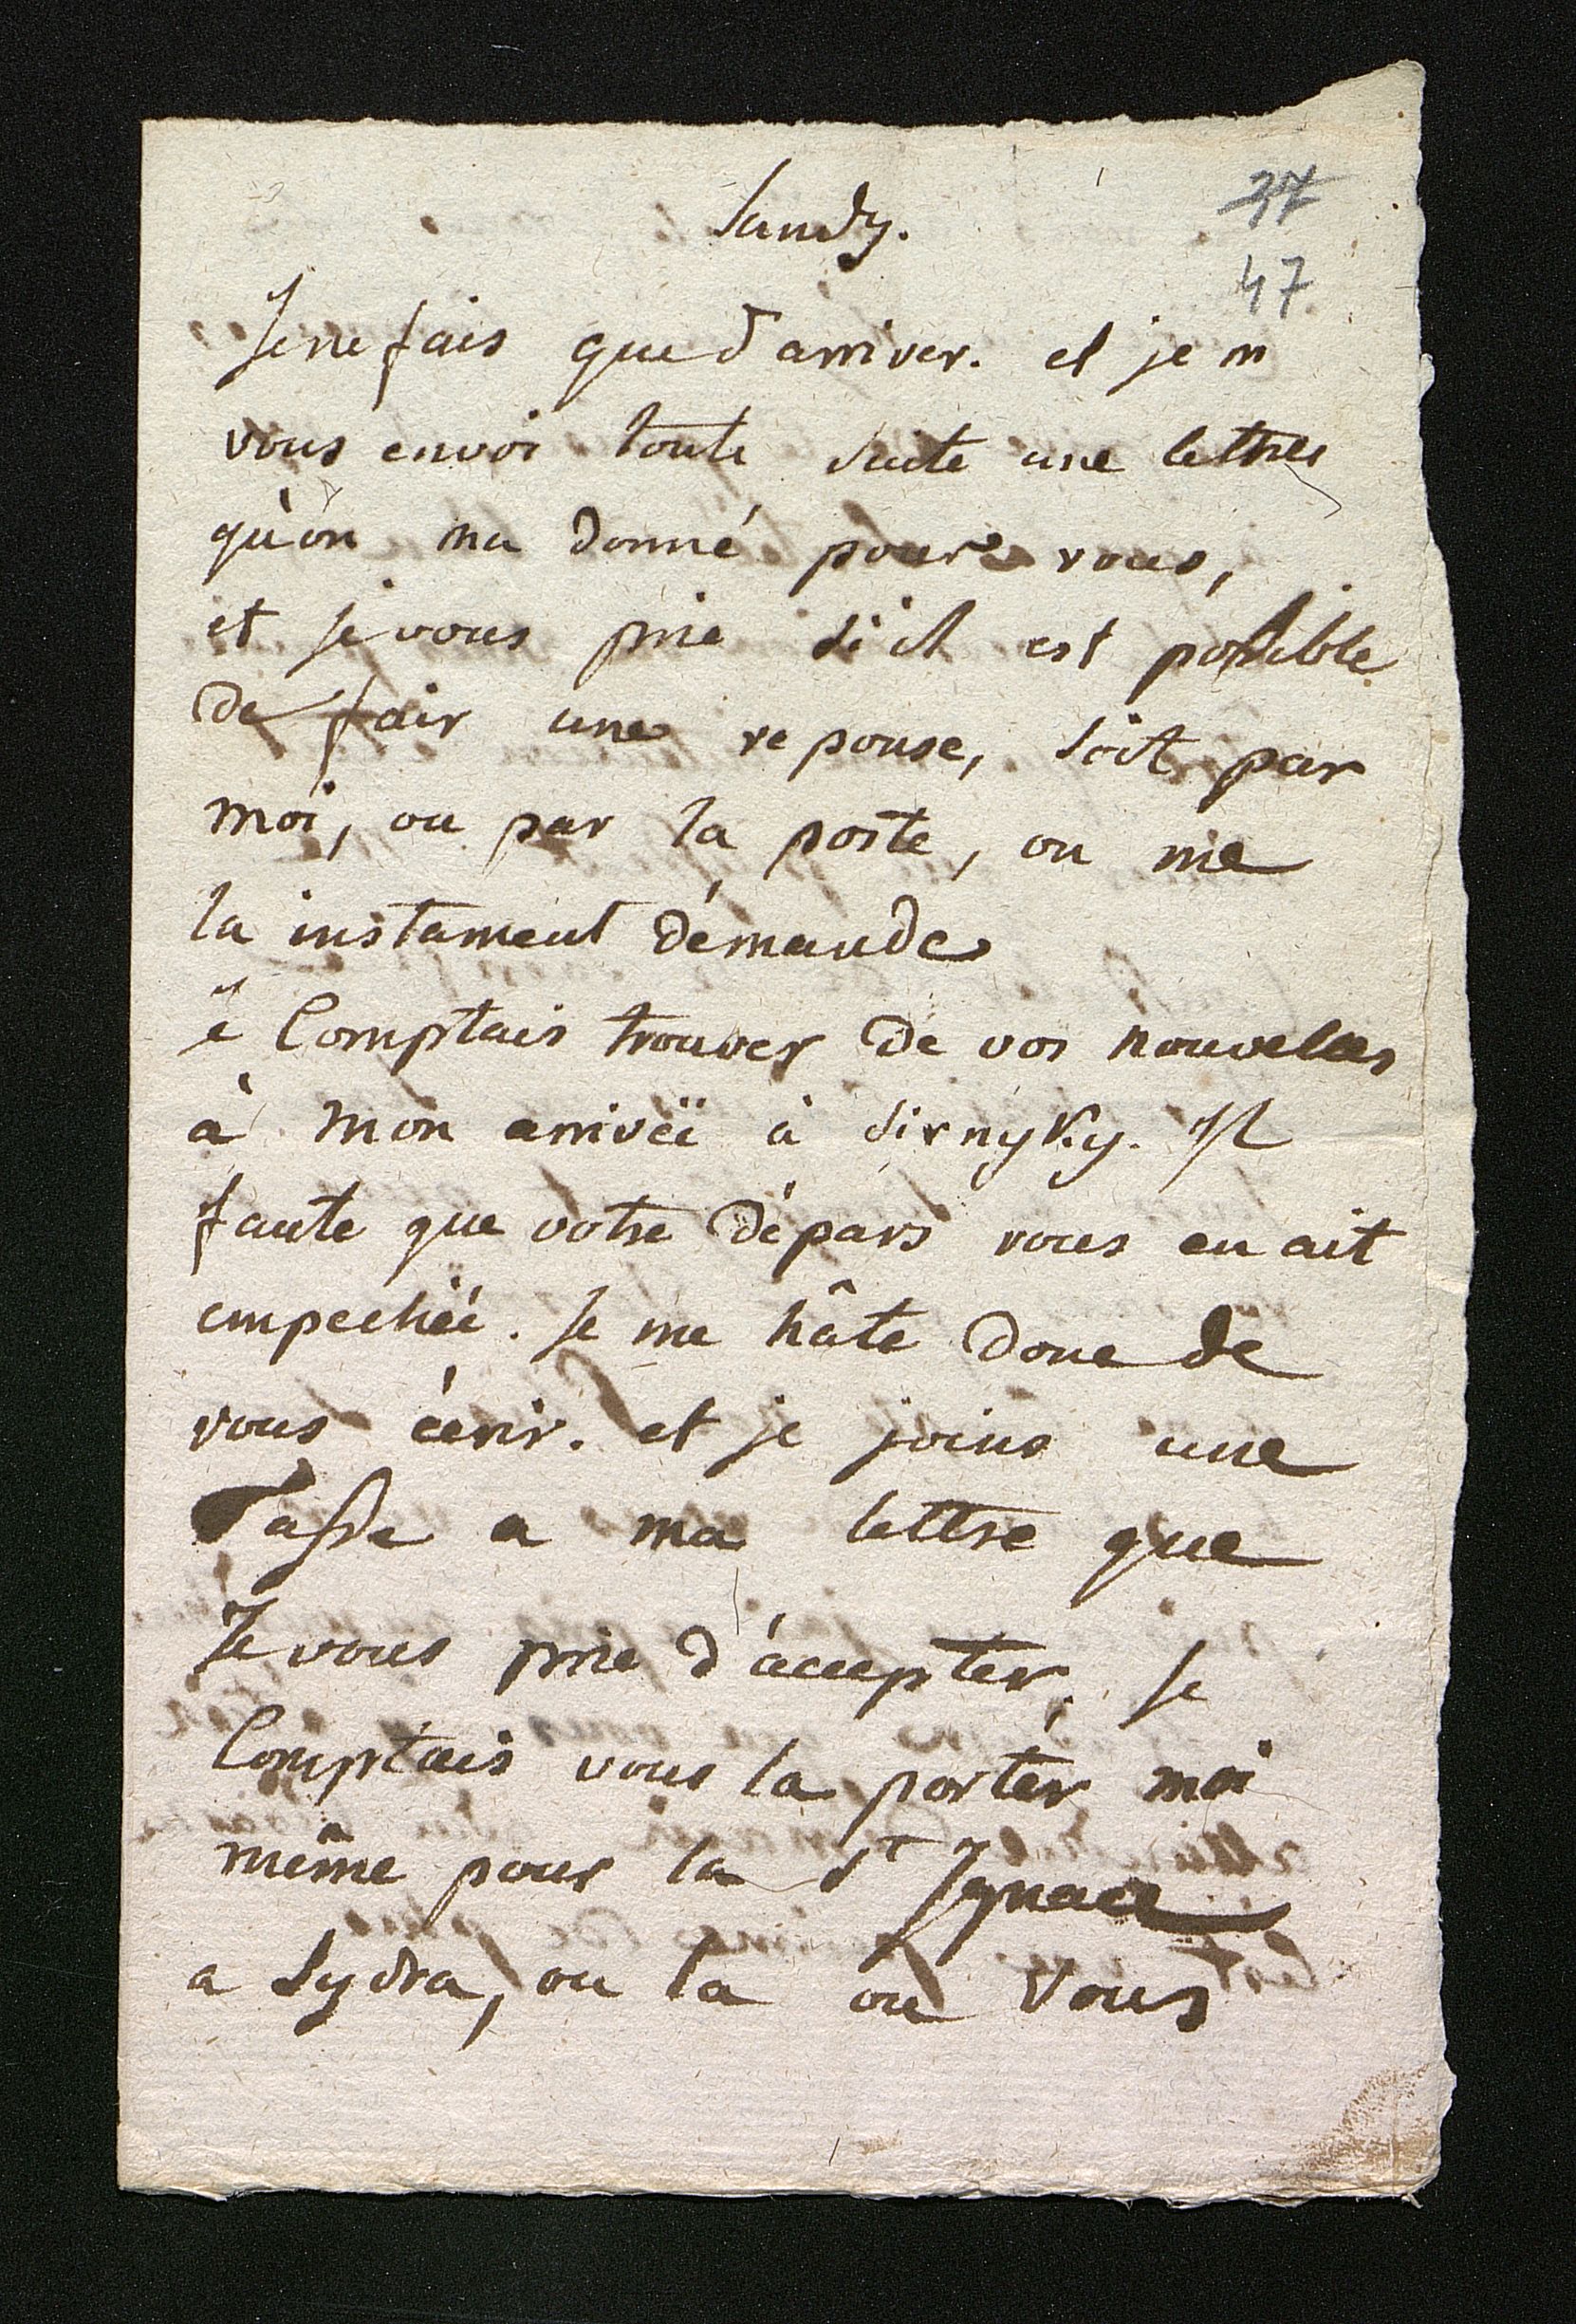 Lundy.
37
47
Je ne fais que d'arriver. et je m
vous envoi toute suite une lettres
qu'on ma donné pour vous,
et je vous prie si il est possible
de fair une reponse, soit par
moi, ou par la poste, on me
la instament démande
Je Comptais trouver de vos nouvelles
à mon arrivéë à Sirnyky. Il
faute que votre départ vous en ait
empechéé. Je me hâte donc de
vous écrir. et je joins une
Tasse a ma lettre que
Je vous prie d'accepter, Je
Comptais vous la porter moi
même pour la St Ignace
a Sydra, ou la ou vous